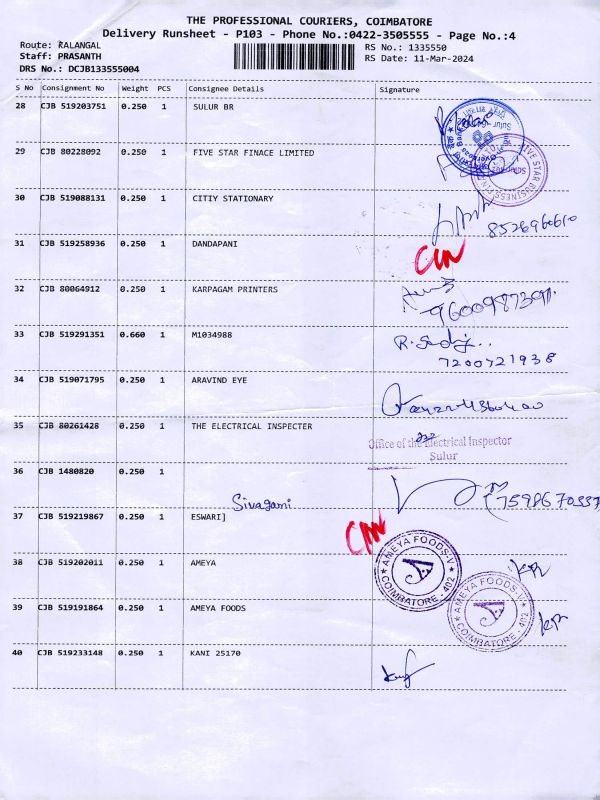 THE PROFESSIONAL COURIERS, COIMBATORE
Delivery Runsheet - P103 - Phone No.:0422-3505555 - Page No.:4
Route: KALANGAL RS No.: 1335550
Staff: PRASANTH RS Date: 11-Mar-2024
DRS No.: DCJB133555004
S No Consignment No Weight PCS Consignee Details Signature
28 CJB 519203751 0.250 1 SULUR BR
29 CJB 80228092 0.250 1 FIVE STAR FINACE LIMITED
30 CJB 519088131 0.250 1 CITIY STATIONARY
8526960610
31 CJB 519258936 0.250 1 DANDAPANI
32 CJB 80064912 0.250 1 KARPAGAM PRINTERS
33 CJB 519291351 0.660 1 M1034988
7200721938
34 CJB 519071795 0.250 1 ARAVIND EYE
35 CJB 80261428 0.250 1 THE ELECTRICAL INSPECTER
Office of the Electrical Inspector
Sulur
36 CJB 1480820 0.250 1
Sivagami
37 CJB 519219867 0.250 1 ESWARI]
38 CJB 519202011 0.250 1 AMEYA
AMEYA FOODS-V
COIMBATORE - 402
39 CJB 519191864 0.250 1 AMEYA FOODS
AMEYA FOODS-V
COIMBATORE - 402
40 CJB 519233148 0.250 1 KANI 25170